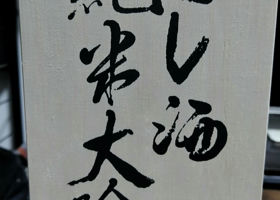 し酒
純米大吟